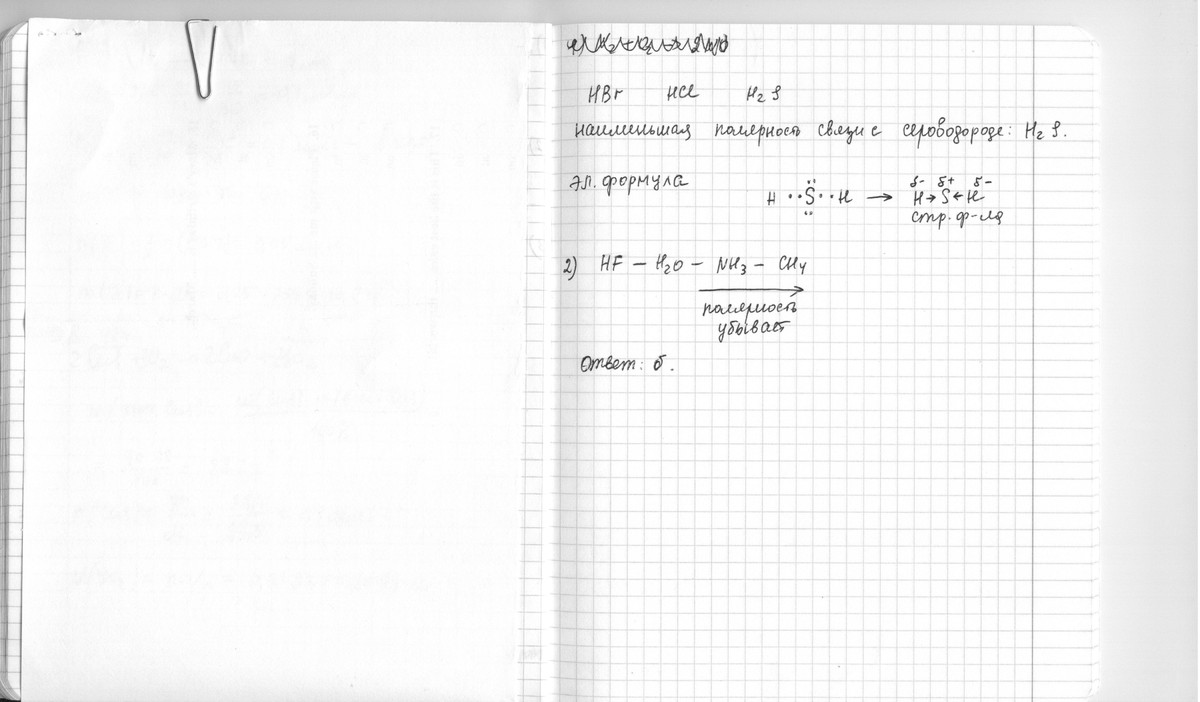 HBr HCl H₂S
наименьшая полярность связи с сероводороде: H₂S.
эл. формула H ··S̈·· H → H→S←H
δ- δ+ δ-
стр. ф-ла
2) HF — H₂O — NH₃ — CH₄
полярность
убывает
Ответ: б.